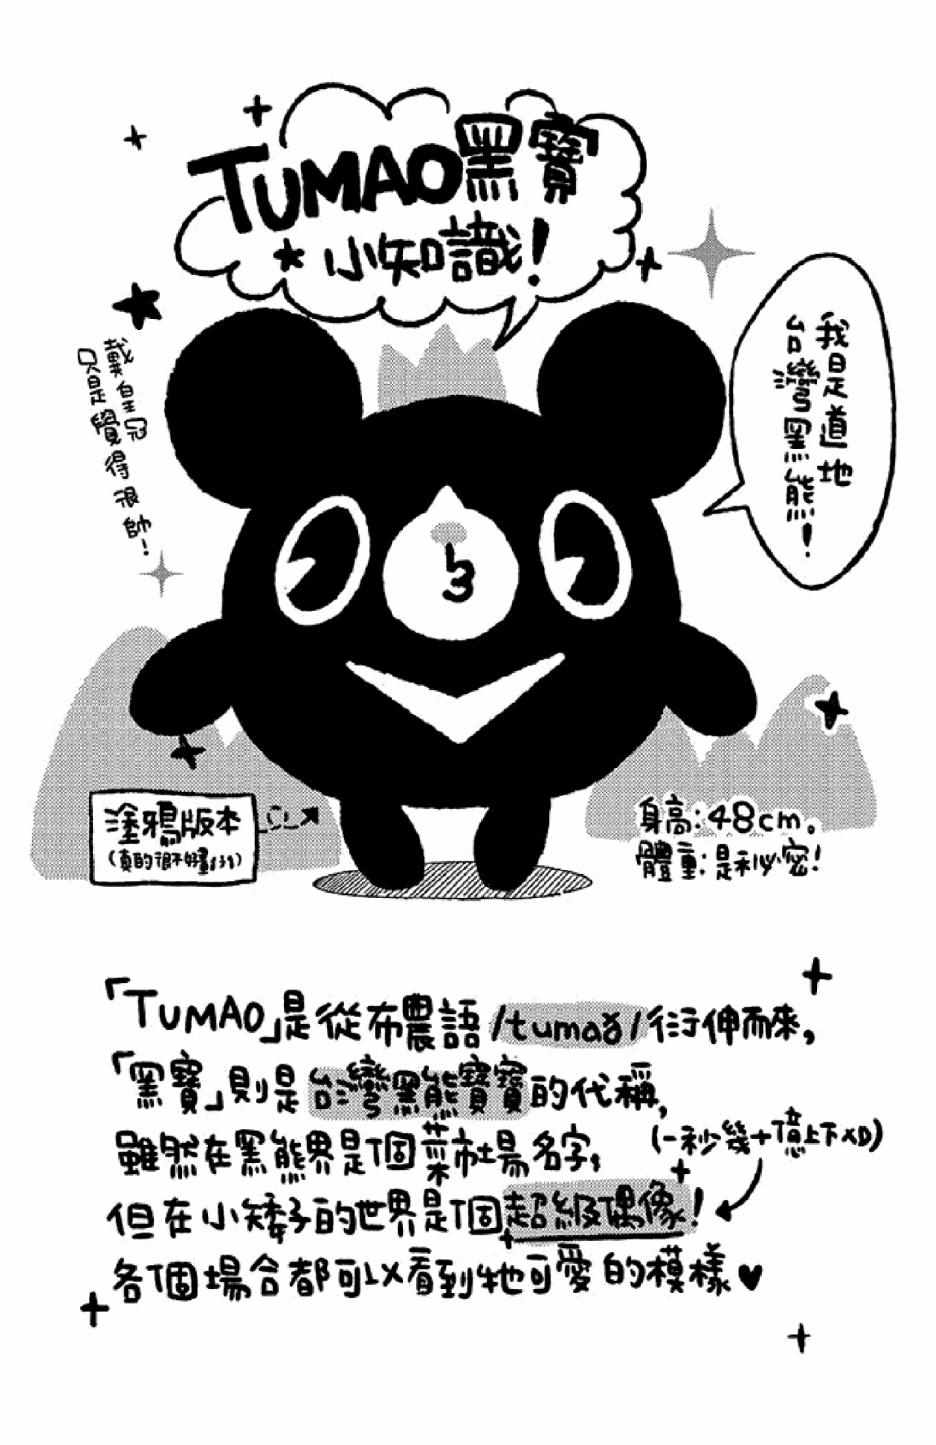 TUMAO黑寶
★小知識!
我是道地
台灣黑熊!
戴皇冠
只是覺得很帥!
塗鴉版本
(真的很不好畫(汗))
身高:48cm。
體重:是秘密!
「TUMAO」是從布農語/tumað/衍伸而來,
「黑寶」則是台灣黑熊寶寶的代稱,
雖然在黑熊界是個菜市場名字,
(一秒幾十億上下XD)
但在小矮子的世界是個超級偶像!
各個場合都可以看到牠可愛的模樣♥